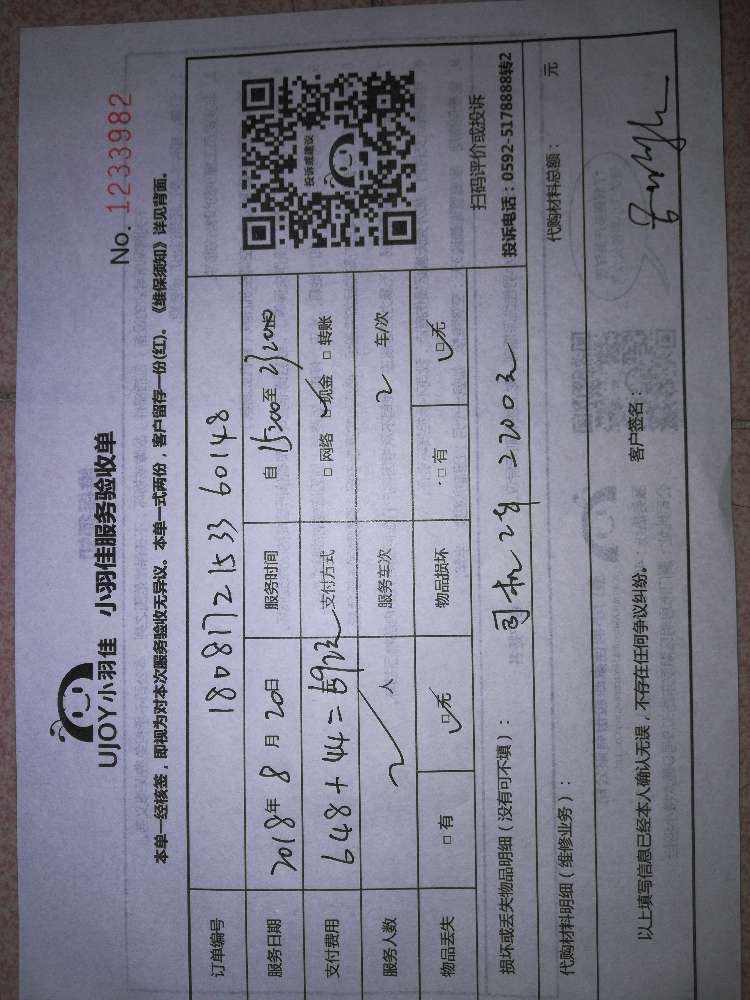 UJOY小羽佳 小羽佳服务验收单
No. 1233982
本单一经核签，即视为对本次服务验收无异议。本单一式两份，客户留存一份(红)。《维保须知》详见背面。
订单编号 1808172153360148
服务日期 2018年 8 月 20日 服务时间 自 15:00至
支付费用 648+44=692元 支付方式 □ 网络 □ 现金 □ 转账
服务人数 2 人 服务车次 2 车/次
物品丢失 □ 有 □ 无 物品损坏 □ 有 □ 无
投诉或建议
扫码评价或投诉
投诉电话：0592-5178888转2
损坏或丢失物品明细（没有可不填）：
代购材料明细（维修业务）： 代购材料总额： 元
以上填写信息已经本人确认无误，不存在任何争议纠纷。 客户签名：